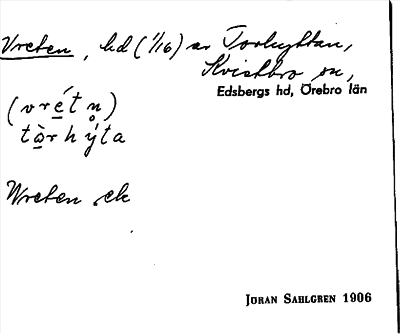 Vreten, hd (1/16) av Torhyttan,
Kvistbro sn,
Edsbergs hd, Örebro län
(vrét n̥)
tàr h ý ta
Wreten ek
JÖRAN SAHLGREN 1906